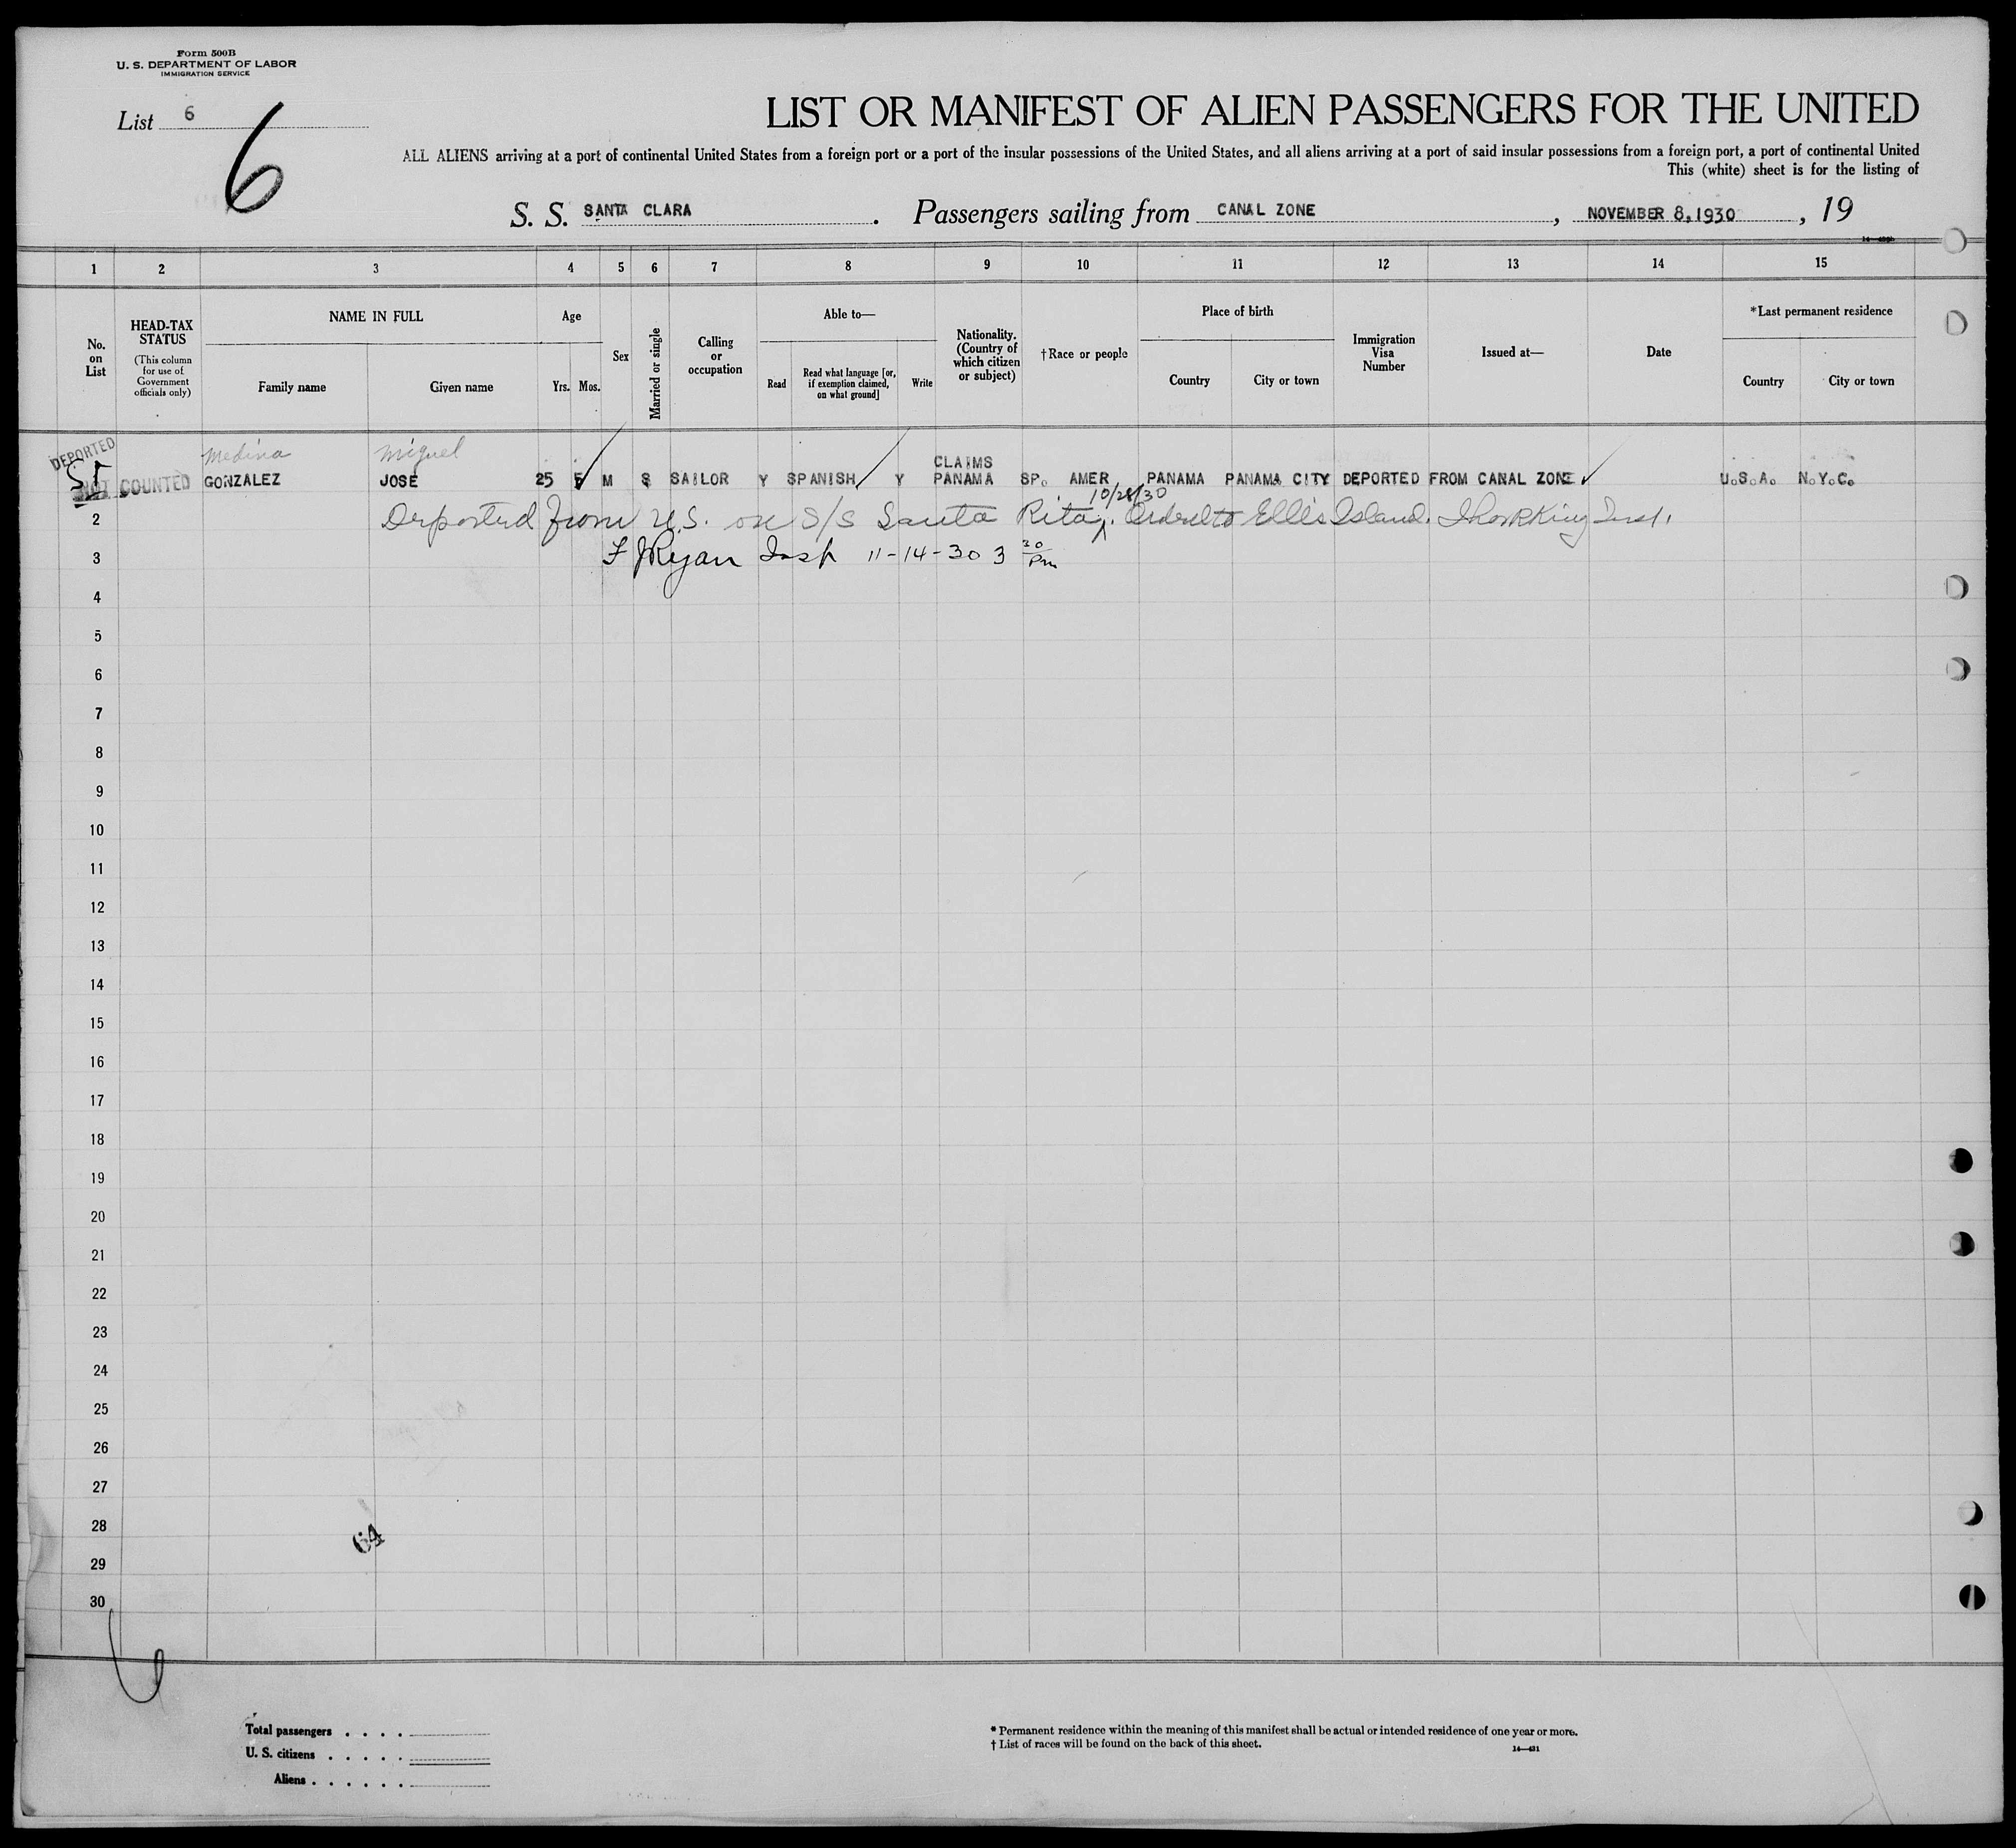 Form 500B
U. S. DEPARTMENT OF LABOR
IMMIGRATION SERVICE
List 6
6
LIST OR MANIFEST OF ALIEN PASSENGERS FOR THE UNITED
ALL ALIENS arriving at a port of continental United States from a foreign port or a port of the insular possessions of the United States, and all aliens arriving at a port of said insular possessions from a foreign port, a port of continental United
This (white) sheet is for the listing of
S. S. SANTA CLARA . Passengers sailing from CANAL ZONE , NOVEMBER 8, 1930 , 19
1 2 3 4 5 6 7 8 9 10 11 12 13 14 15
No. on List
HEAD-TAX STATUS
(This column for use of Government officials only)
NAME IN FULL
Family name
Given name
Age
Yrs. Mos.
Sex
Married or single
Calling or occupation
Able to—
Read
Read what language [or, if exemption claimed, on what ground]
Write
Nationality. (Country of which citizen or subject)
†Race or people
Place of birth
Country
City or town
Immigration Visa Number
Issued at—
Date
*Last permanent residence
Country
City or town
DEPORTED
Medina Miguel
CLAIMS
NOT COUNTED GONZALEZ JOSE 25 M S SAILOR Y SPANISH Y PANAMA SP. AMER PANAMA PANAMA CITY DEPORTED FROM CANAL ZONE U.S.A. N.Y.C.
10/28/30
2 Deported from U.S. on S/S Santa Rita. Ordered to Ellis Island.
3 F J Ryan Insp 11-14-30 3 20 Pm
4
5
6
7
8
9
10
11
12
13
14
15
16
17
18
19
20
21
22
23
24
25
26
27
28
29
30
64
Total passengers . . . .
U. S. citizens . . . . .
Aliens . . . . . .
* Permanent residence within the meaning of this manifest shall be actual or intended residence of one year or more.
† List of races will be found on the back of this sheet.